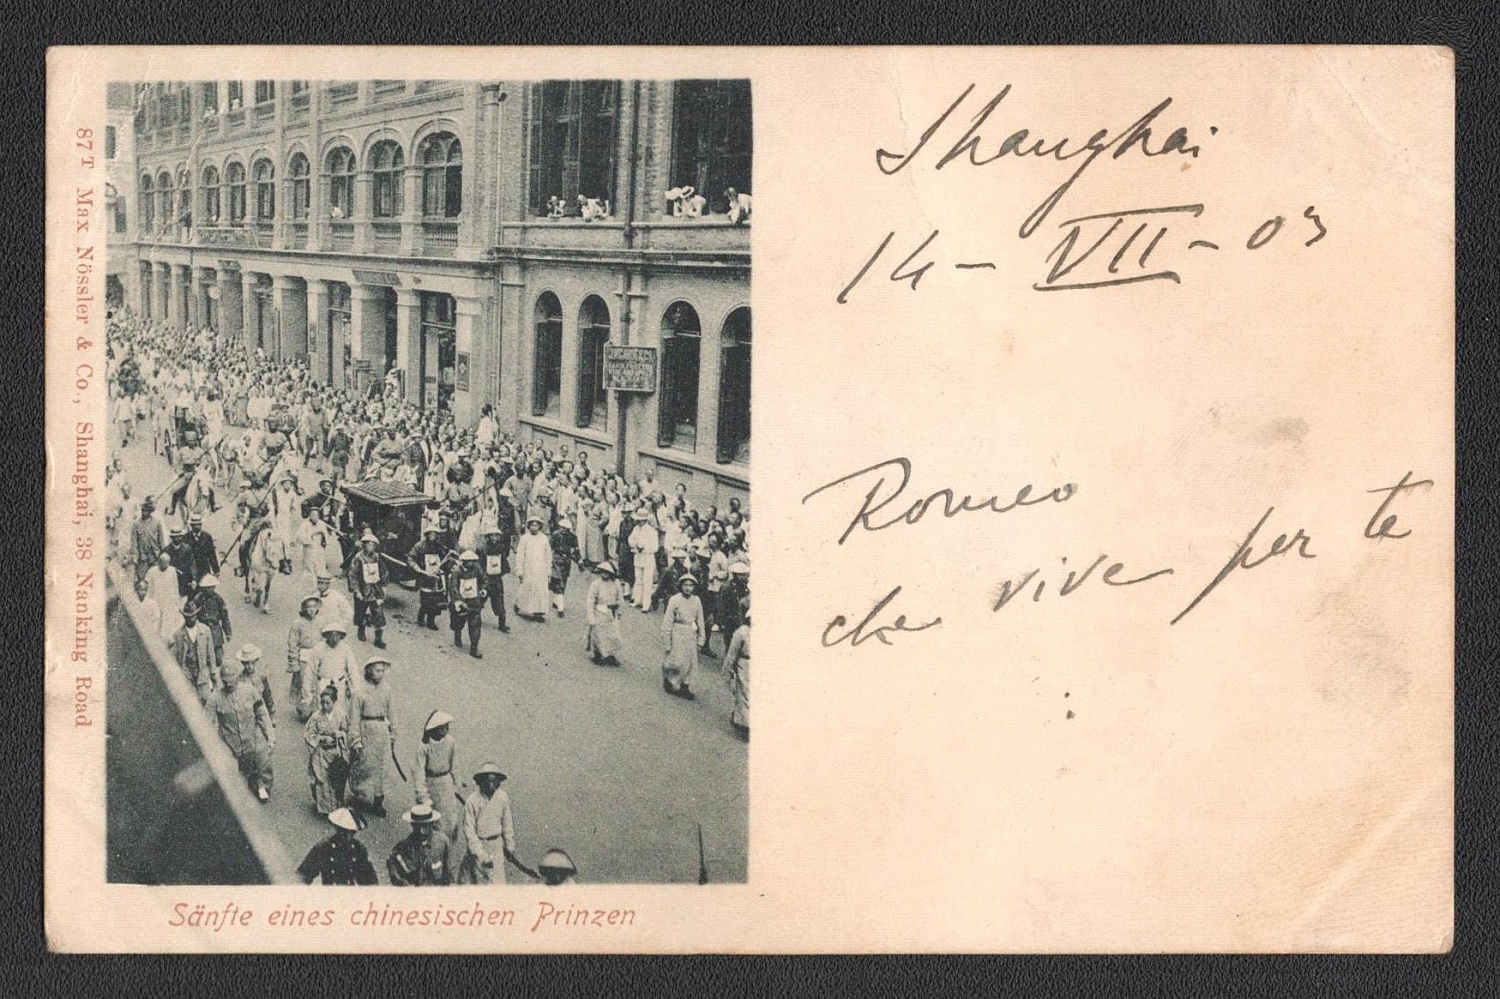 87 T Max Nössler & Co., Shanghai, 38 Nanking Road
Sänfte eines chinesischen Prinzen
Shanghai
14 - VII - 03
Romeo
che vive per te